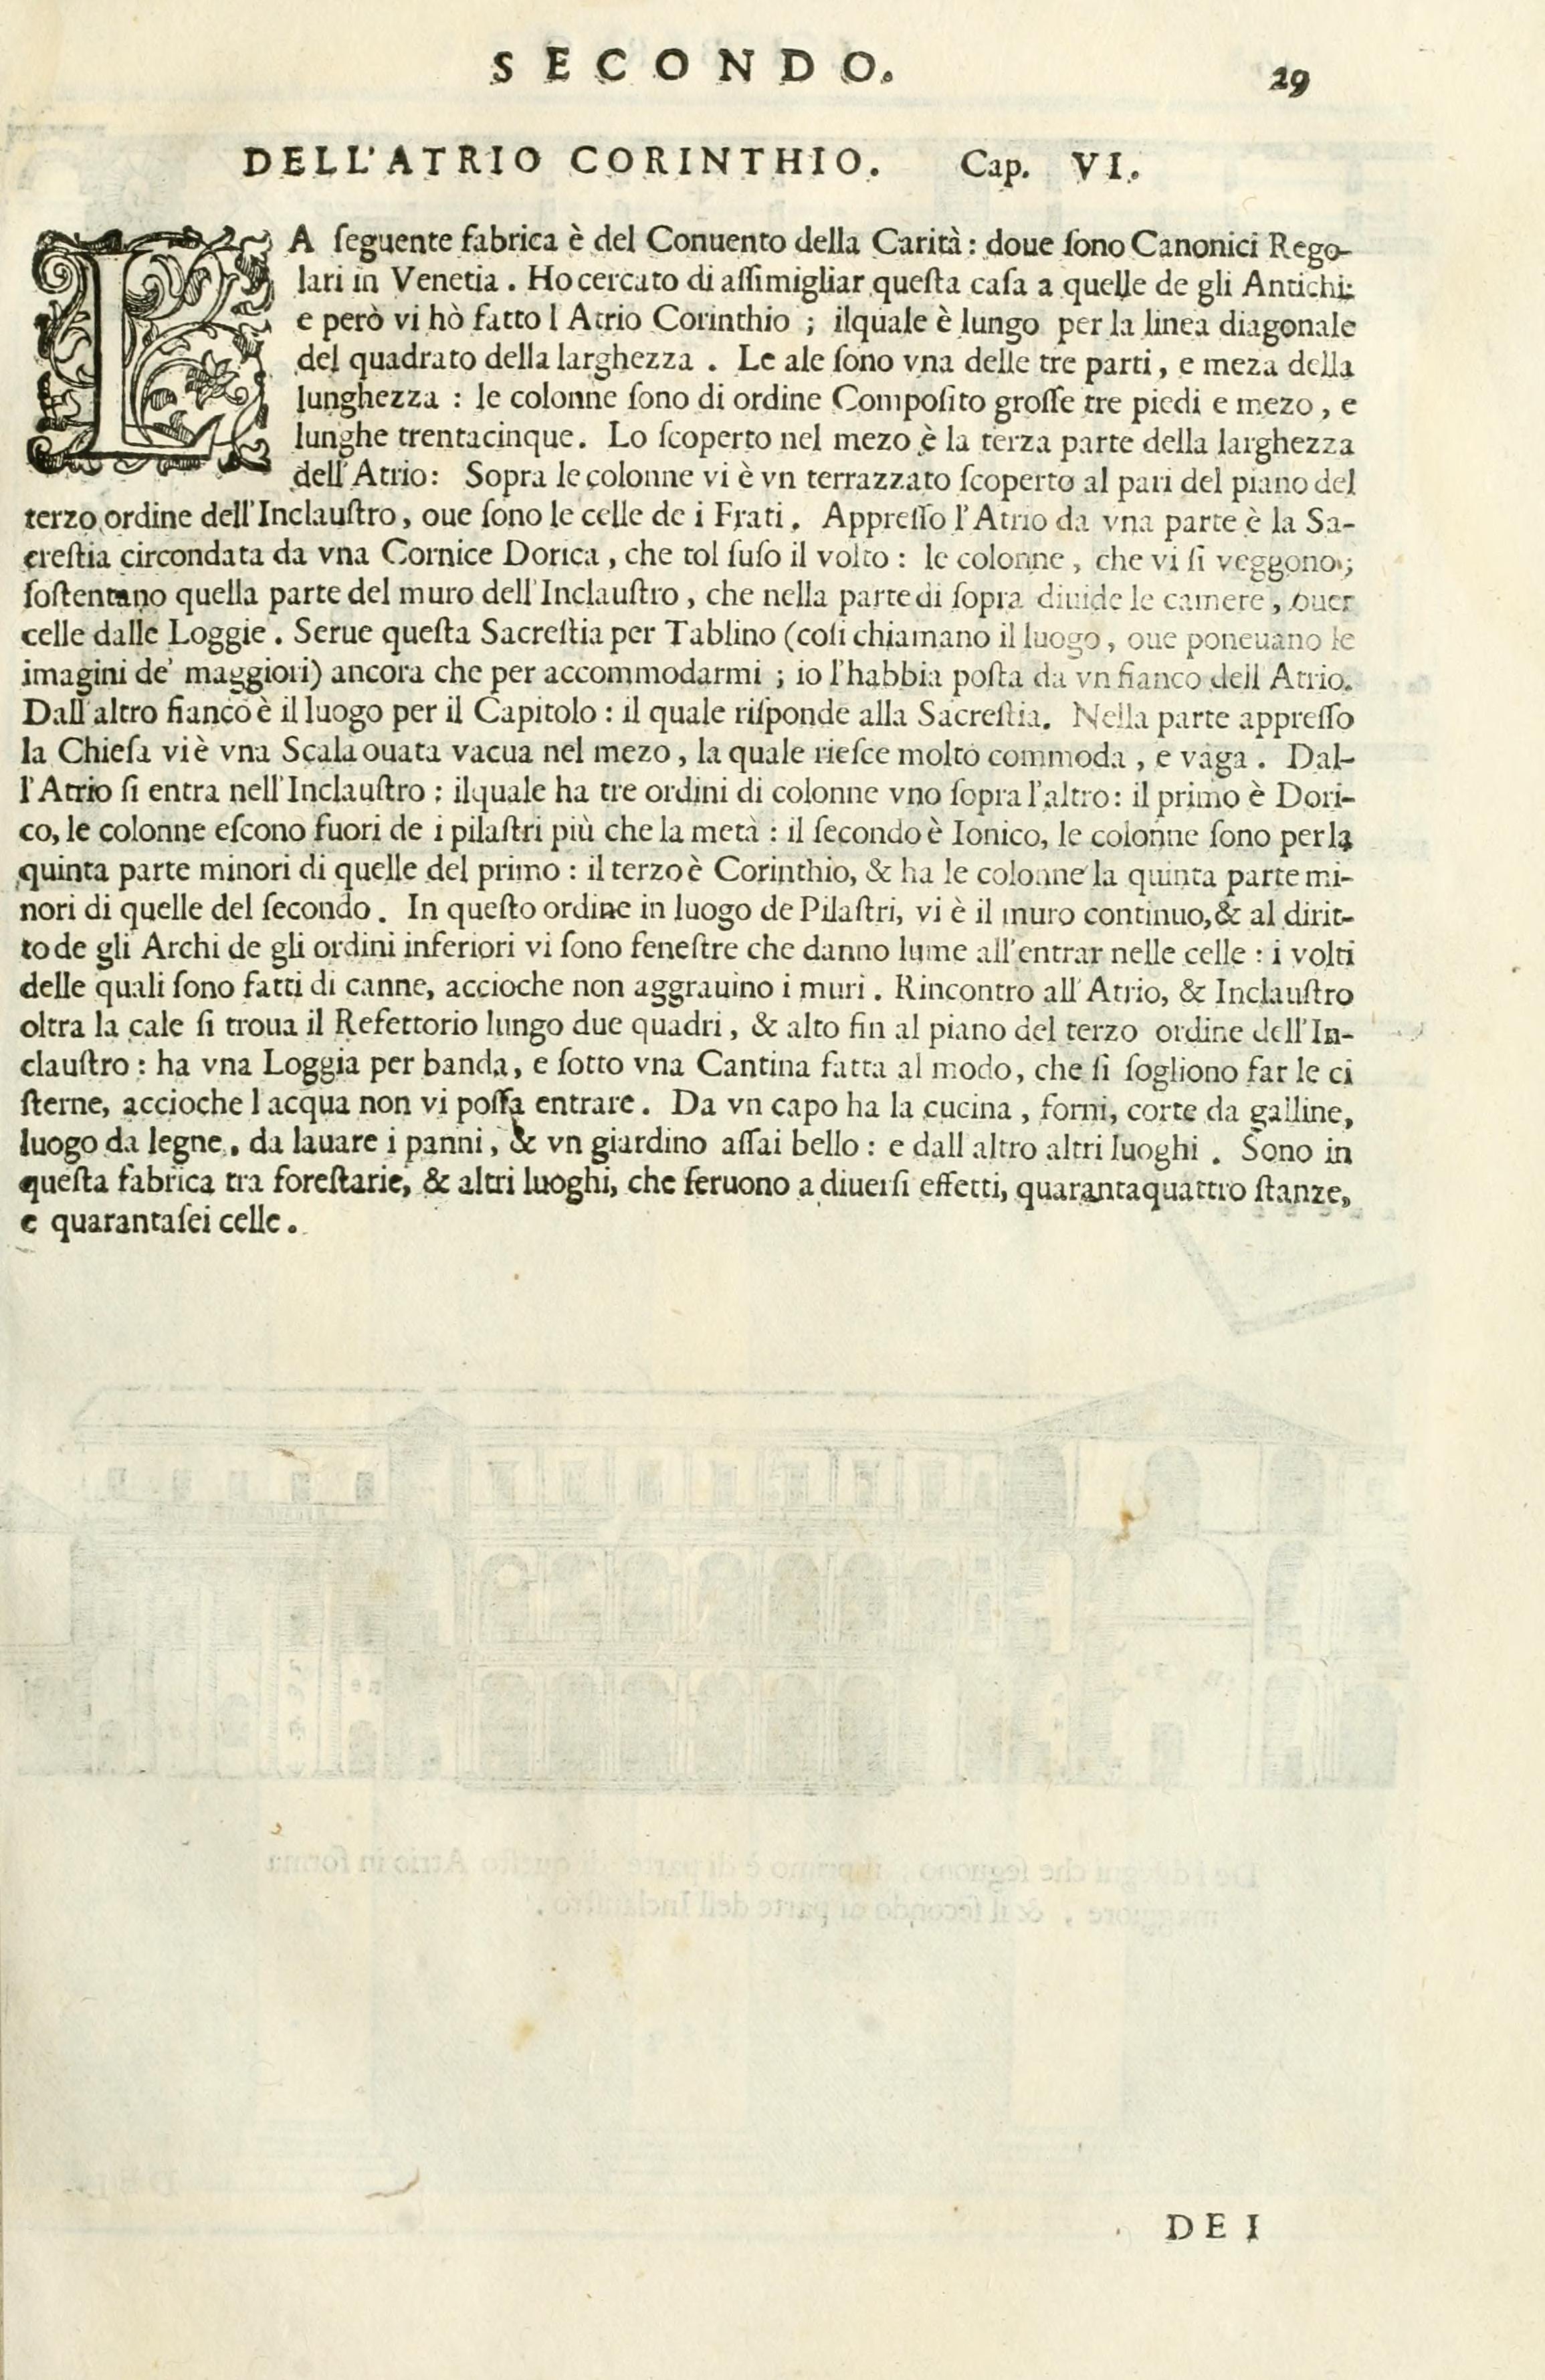 SECONDO. 29
DELL'ATRIO CORINTHIO. Cap. VI.
LA ſeguente fabrica è del Conuento della Carità: doue ſono Canonici Rego-
lari in Venetia. Ho cercato di aſſimigliar queſta caſa a quelle de gli Antichi:
e però vi hò fatto l Atrio Corinthio; ilquale è lungo per la linea diagonale
del quadrato della larghezza. Le ale ſono vna delle tre parti, e meza della
lunghezza: le colonne ſono di ordine Compoſito groſſe tre piedi e mezo, e
lunghe trentacinque. Lo ſcoperto nel mezo è la terza parte della larghezza
dell'Atrio: Sopra le colonne vi è vn terrazzato ſcoperto al pari del piano del
terzo ordine dell'Inclauſtro, oue ſono le celle de i Frati. Appreſſo l'Atrio da vna parte è la Sa-
creſtia circondata da vna Cornice Dorica, che tol ſuſo il volto: le colonne, che vi ſi veggono;
ſoſtentano quella parte del muro dell'Inclauſtro, che nella parte di ſopra diuide le camere, ouer
celle dalle Loggie. Serue queſta Sacreſtia per Tablino (coſi chiamano il luogo, oue poneuano le
imagini de' maggiori) ancora che per accommodarmi; io l'habbia poſta da vn fianco dell Atrio.
Dall'altro fianco è il luogo per il Capitolo: il quale riſponde alla Sacreſtia. Nella parte appreſſo
la Chieſa vi è vna Scala ouata vacua nel mezo, la quale rieſce molto commoda, e vaga. Dal-
l'Atrio ſi entra nell'Inclauſtro; ilquale ha tre ordini di colonne vno ſopra l'altro: il primo è Dori-
co, le colonne eſcono fuori de i pilaſtri più che la metà: il ſecondo è Ionico, le colonne ſono per la
quinta parte minori di quelle del primo: il terzo è Corinthio, & ha le colonne la quinta parte mi-
nori di quelle del ſecondo. In queſto ordine in luogo de Pilaſtri, vi è il muro continuo, & al dirit-
to de gli Archi de gli ordini inferiori vi ſono feneſtre che danno lume all'entrar nelle celle: i volti
delle quali ſono fatti di canne, accioche non aggrauino i muri. Rincontro all'Atrio, & Inclauſtro
oltra la cale ſi troua il Refettorio lungo due quadri, & alto fin al piano del terzo ordine dell'In-
clauſtro: ha vna Loggia per banda, e ſotto vna Cantina fatta al modo, che ſi ſogliono far le ci
ſterne, accioche l acqua non vi poſſa entrare. Da vn capo ha la cucina, forni, corte da galline,
luogo da legne, da lauare i panni, & vn giardino aſſai bello: e dall altro altri luoghi. Sono in
queſta fabrica tra foreſtarie, & altri luoghi, che ſeruono a diuerſi effetti, quarantaquattro ſtanze,
e quarantaſei celle.
DEI